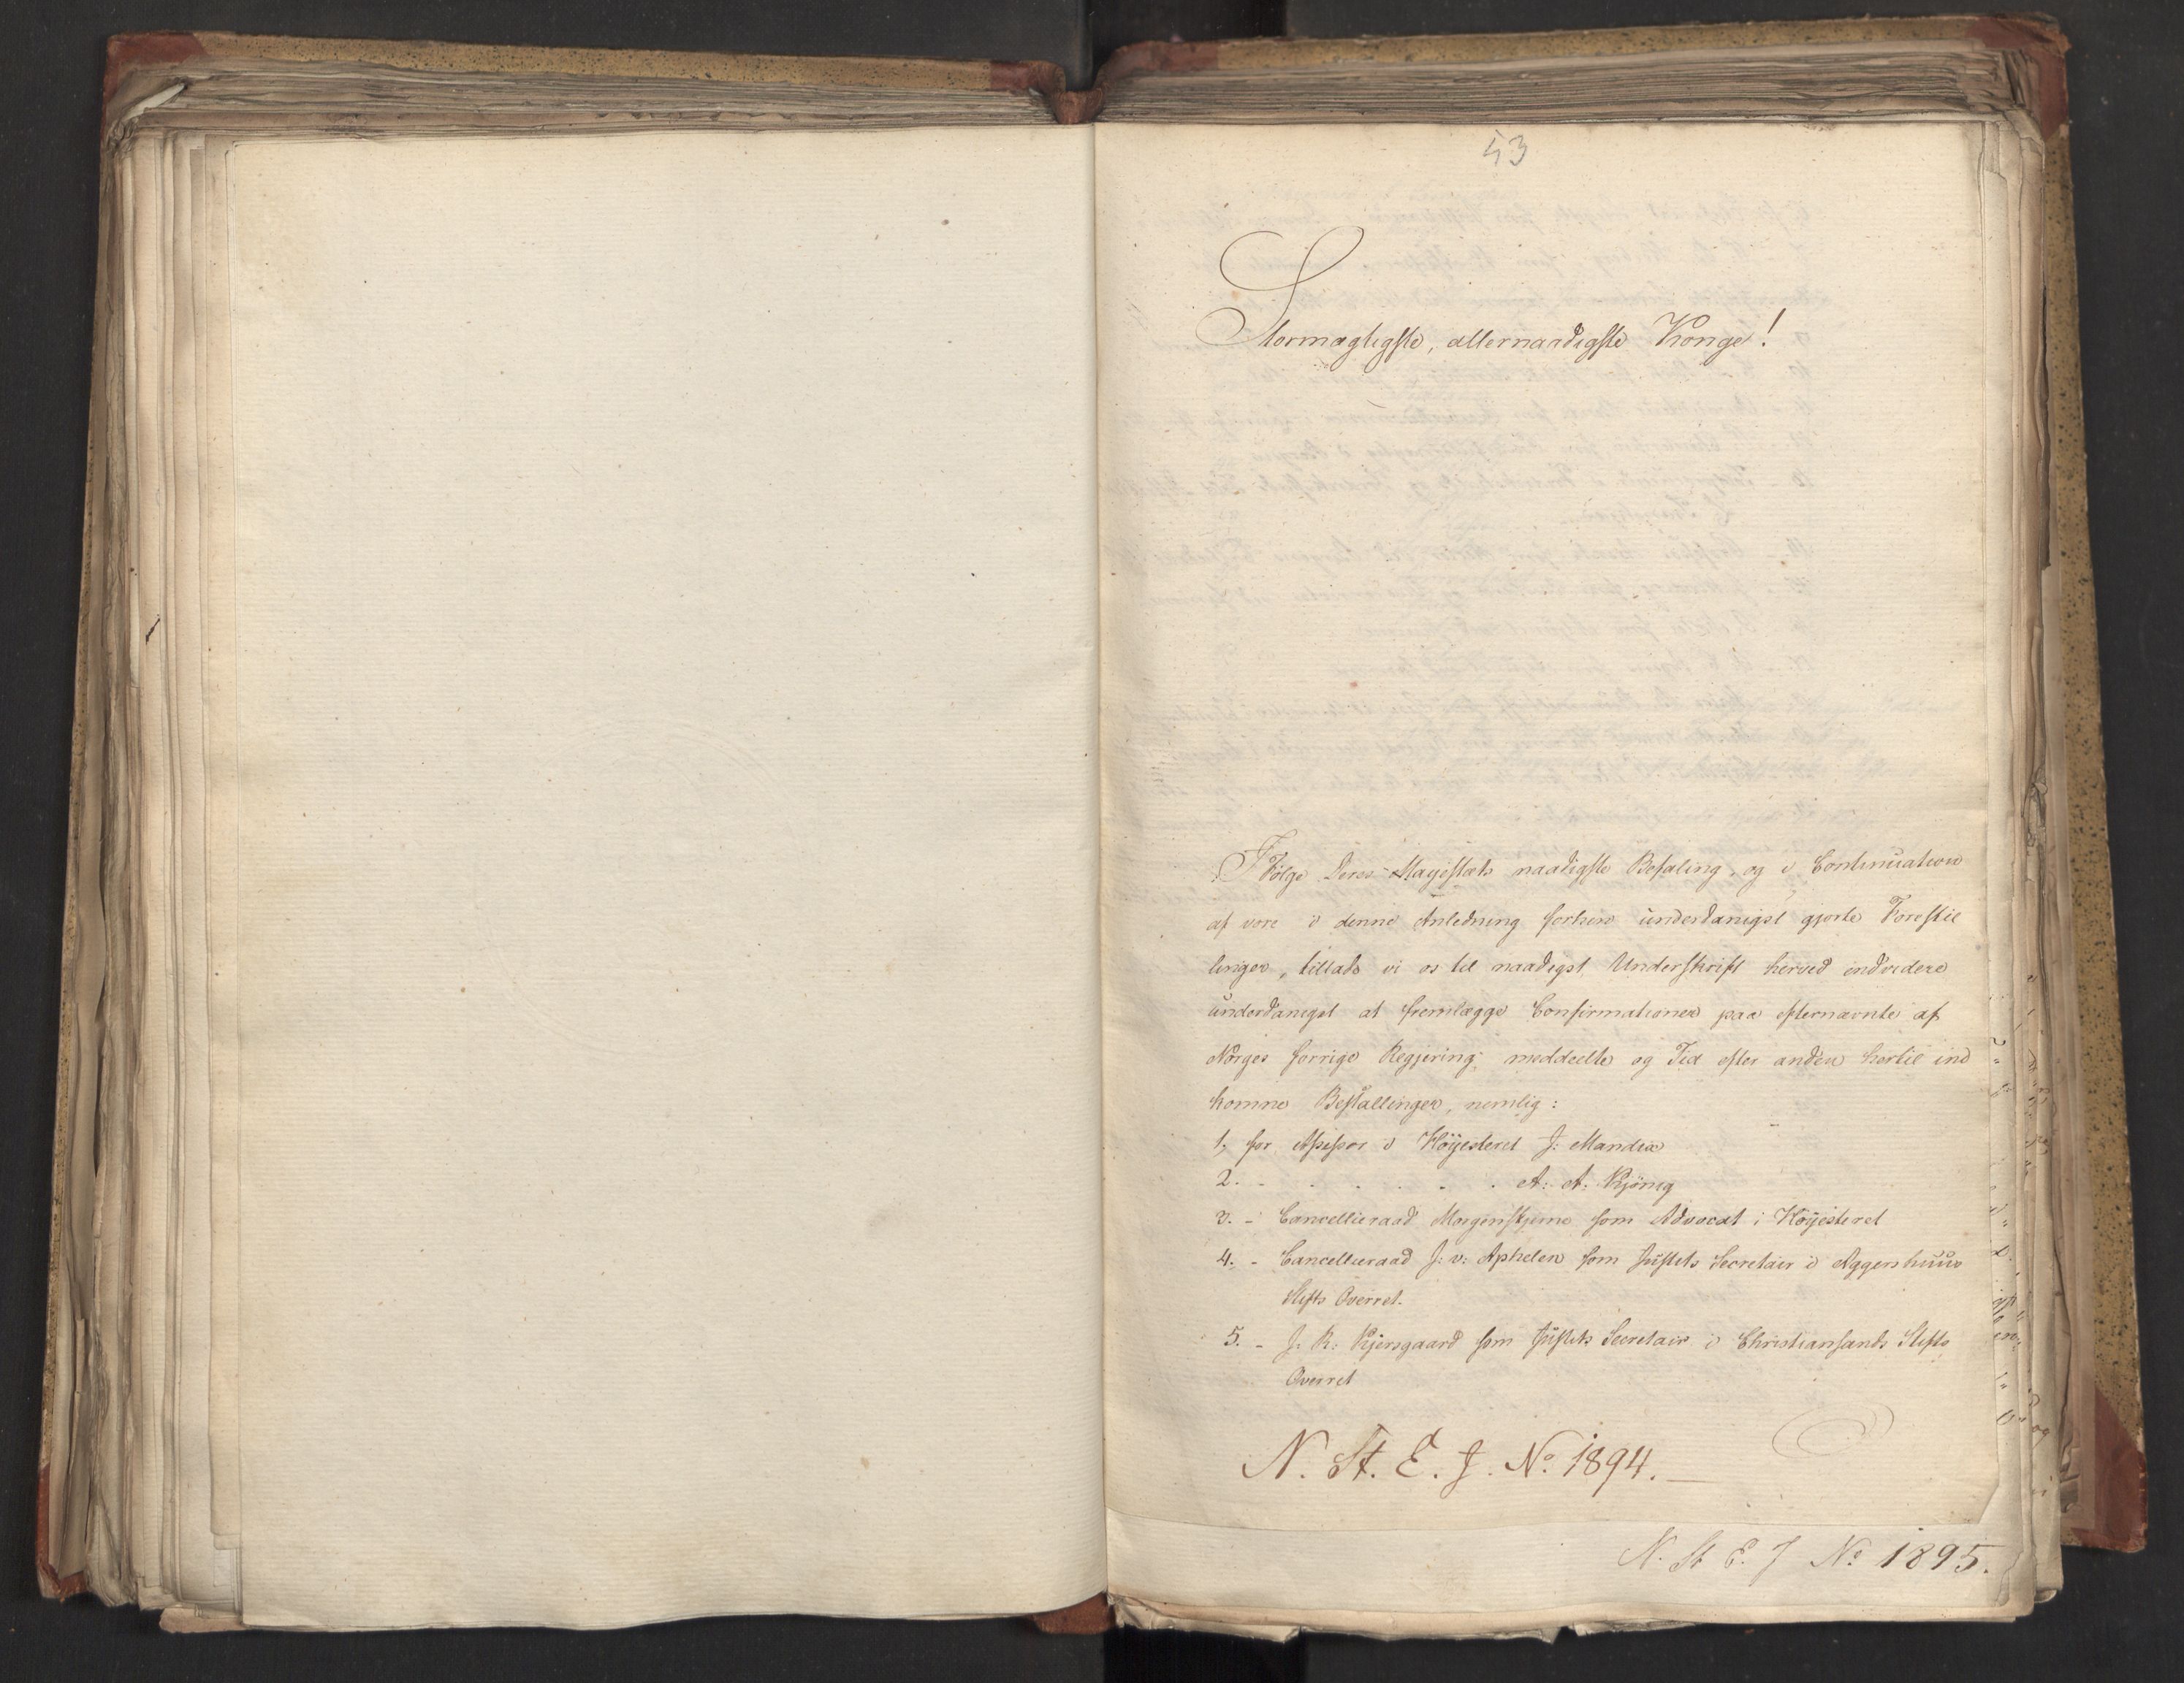 53
Stormægtigste, allernaadigste Konge!
I Følge Deres Majestæts naadigste Befaling, og i Continuation
af vore i denne Anledning forhen underdanigst gjorte Forestil
linger, tillade vi os til naadigst Underskrift herved indvidere
underdanigst at fremlægge Confirmationer paa efternævnte af
Norges forrige Regjering meddeelte og Tid efter anden hertil ind
komne Bestallinger, nemlig:
1, for Assessor i Høyesteret J: Mandix
2. - . . . . - . A: A: Kjønig
3. - Cancelliraad Morgenstjerne som Advocat i Høyesteret
4. - Cancelliraad J: v: Aphelen som Justits Secretair i Aggershuus
Stifts Overret.
5. - J: R: Kjersgaard som Justits Secretair i Christiansands Stifts
Overret
N. St. E. J. No. 1894.
N. St E. J No 1895.